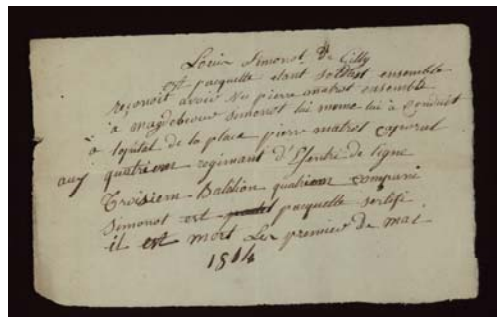 Louis Simonot de Gilly
est pacquette etant soldast ensemble
reconoit avoir vu pierre matrot ensemble
a magdebour Simonot lui meme lui a conduit
a lopital de la place pierre matrot caporal
aux quatriem regimant d'Efentri de ligne
Troisiem Batalion quatriem compani
Simonot est pacquette sertifi
il est mort Le premier de mai
1814